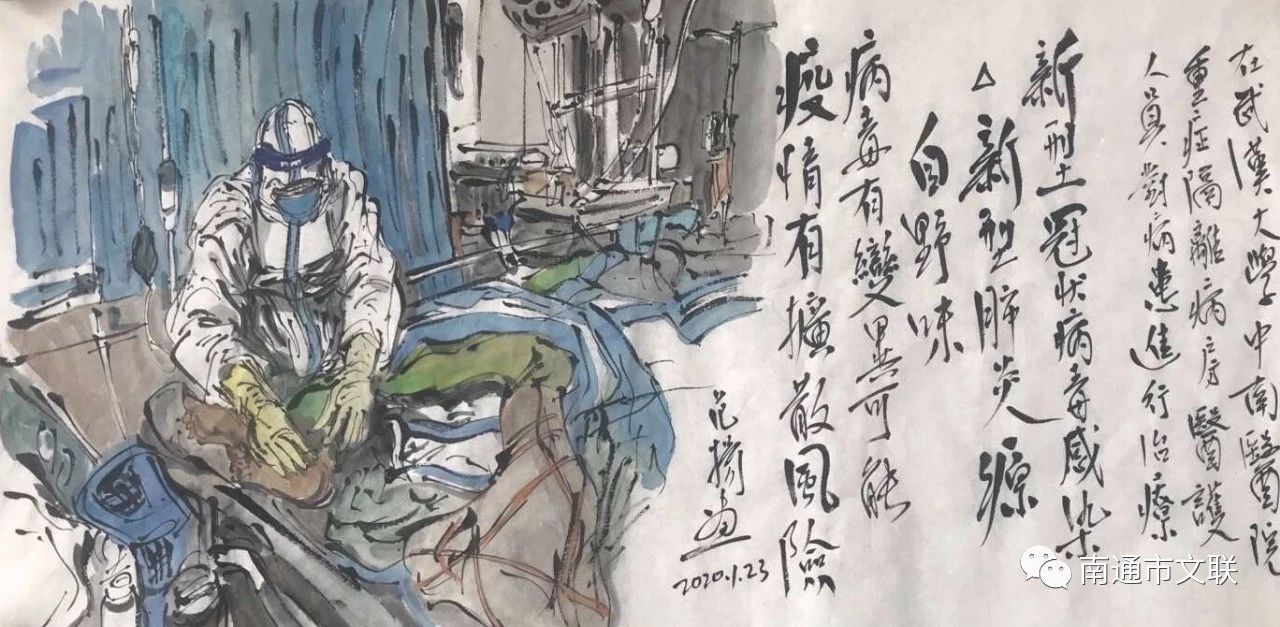 在武漢大學中南醫院
重症隔離病房醫護人
人員對病患進行治療
新型冠狀病毒感染
△新型肺炎源
自野味
病毒有變異可能
疫情有擴散風險
范揚画
2020.1.23
南通市文联